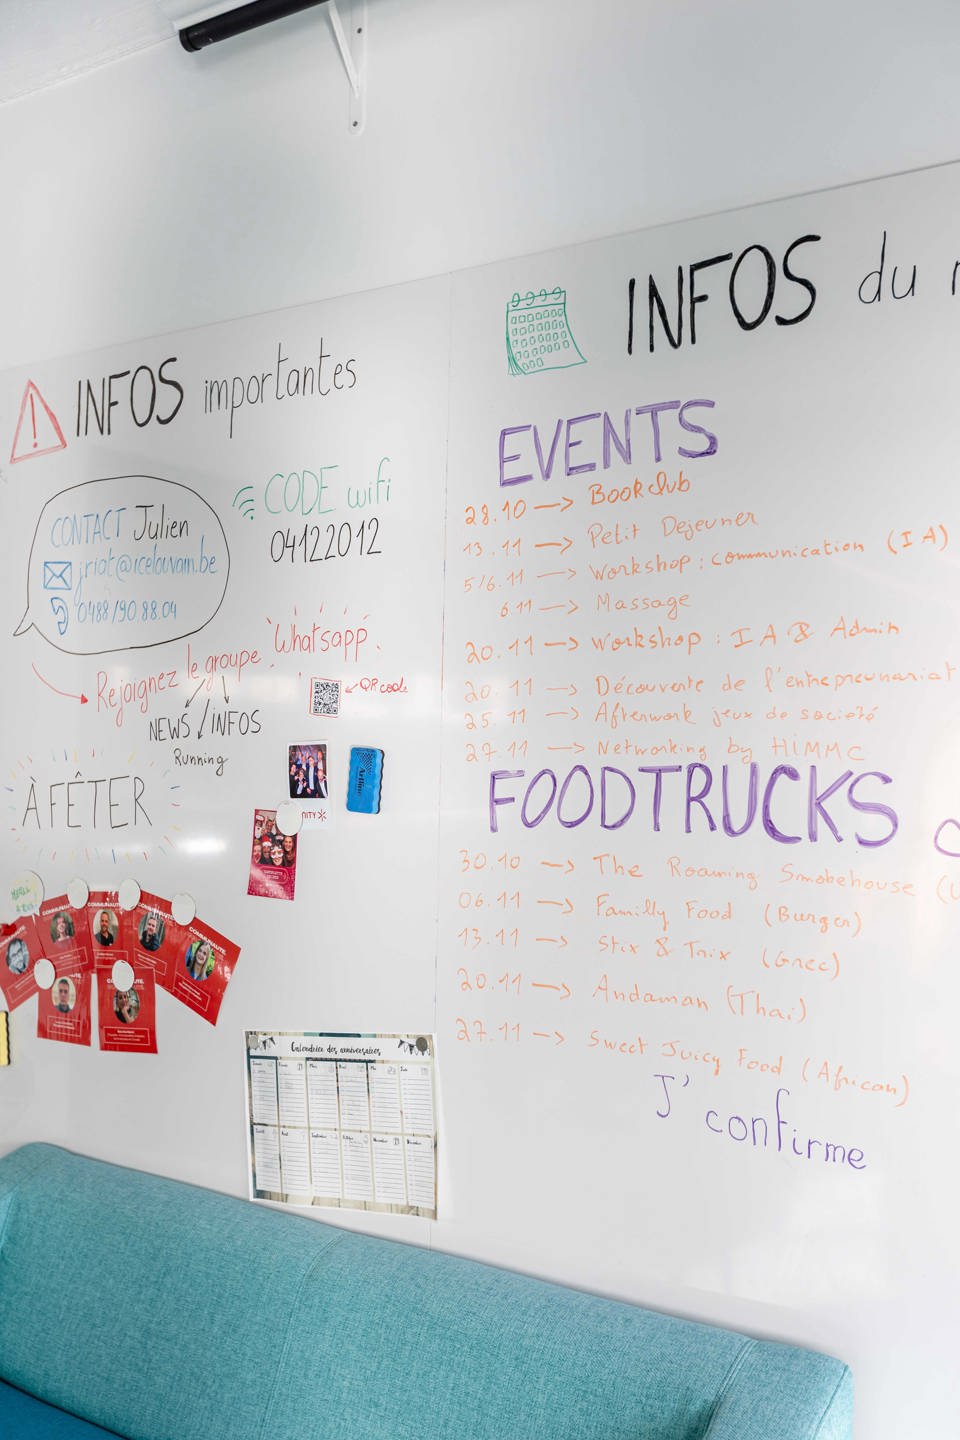 INFOS importantes
CONTACT Julien
jriat@icelouvain.be
0488/90.88.04
CODE wifi
04122012
Rejoignez le groupe Whatsapp
QR code
NEWS / INFOS
Running
À FÊTER
COMMUNAUTÉ
COMMUNAUTÉ
COMMUNAUTÉ
COMMUNAUTÉ.
Calendrier des anniversaires
INFOS du
EVENTS
28.10 —> Bookclub
13.11 —> Petit Dejeuner
5/6.11 —> Workshop : communication (IA)
6.11 —> Massage
20.11 —> Workshop : IA & Admin
20.11 —> Découverte de l'entrepreunariat
25.11 —> Afterwork jeux de société
27.11 —> Networking by HIMMC
FOODTRUCKS
30.10 —> The Roaming Smokehouse
06.11 —> Familly Food (Burger)
13.11 —> Stix & Trix (Grec)
20.11 —> Andaman (Thai)
27.11 —> Sweet Juicy Food (African)
J'confirme